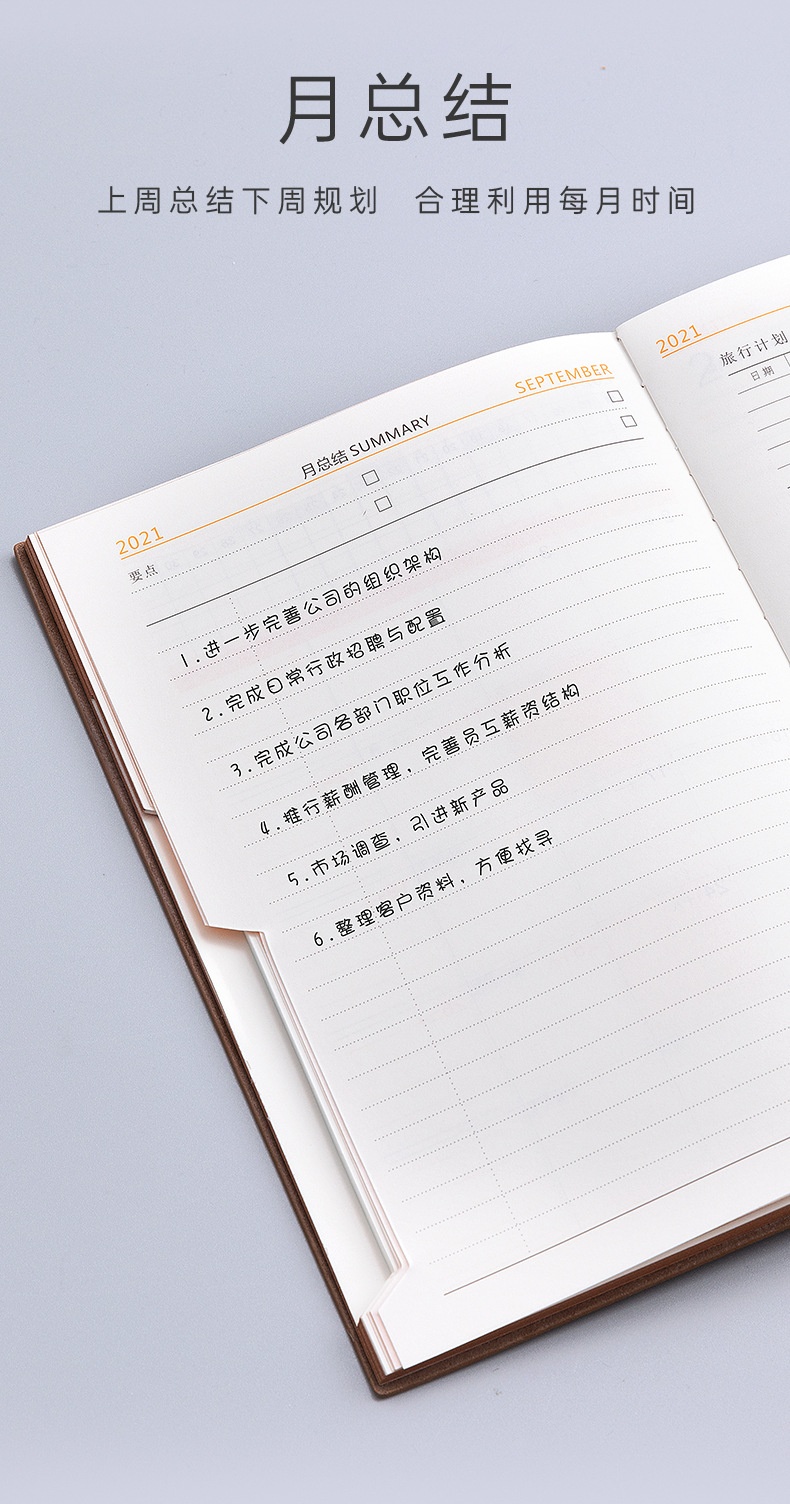 月总结
上周总结下周规划 合理利用每月时间
2021
月总结 SUMMARY
SEPTEMBER
要点
1.进一步完善公司的组织架构
2.完成日常行政招聘与配置
3.完成公司各部门职位工作分析
4.推行薪酬管理，完善员工薪资结构
5.市场调查，引进新产品
6.整理客户资料，方便找寻
2021
旅行计划
日期